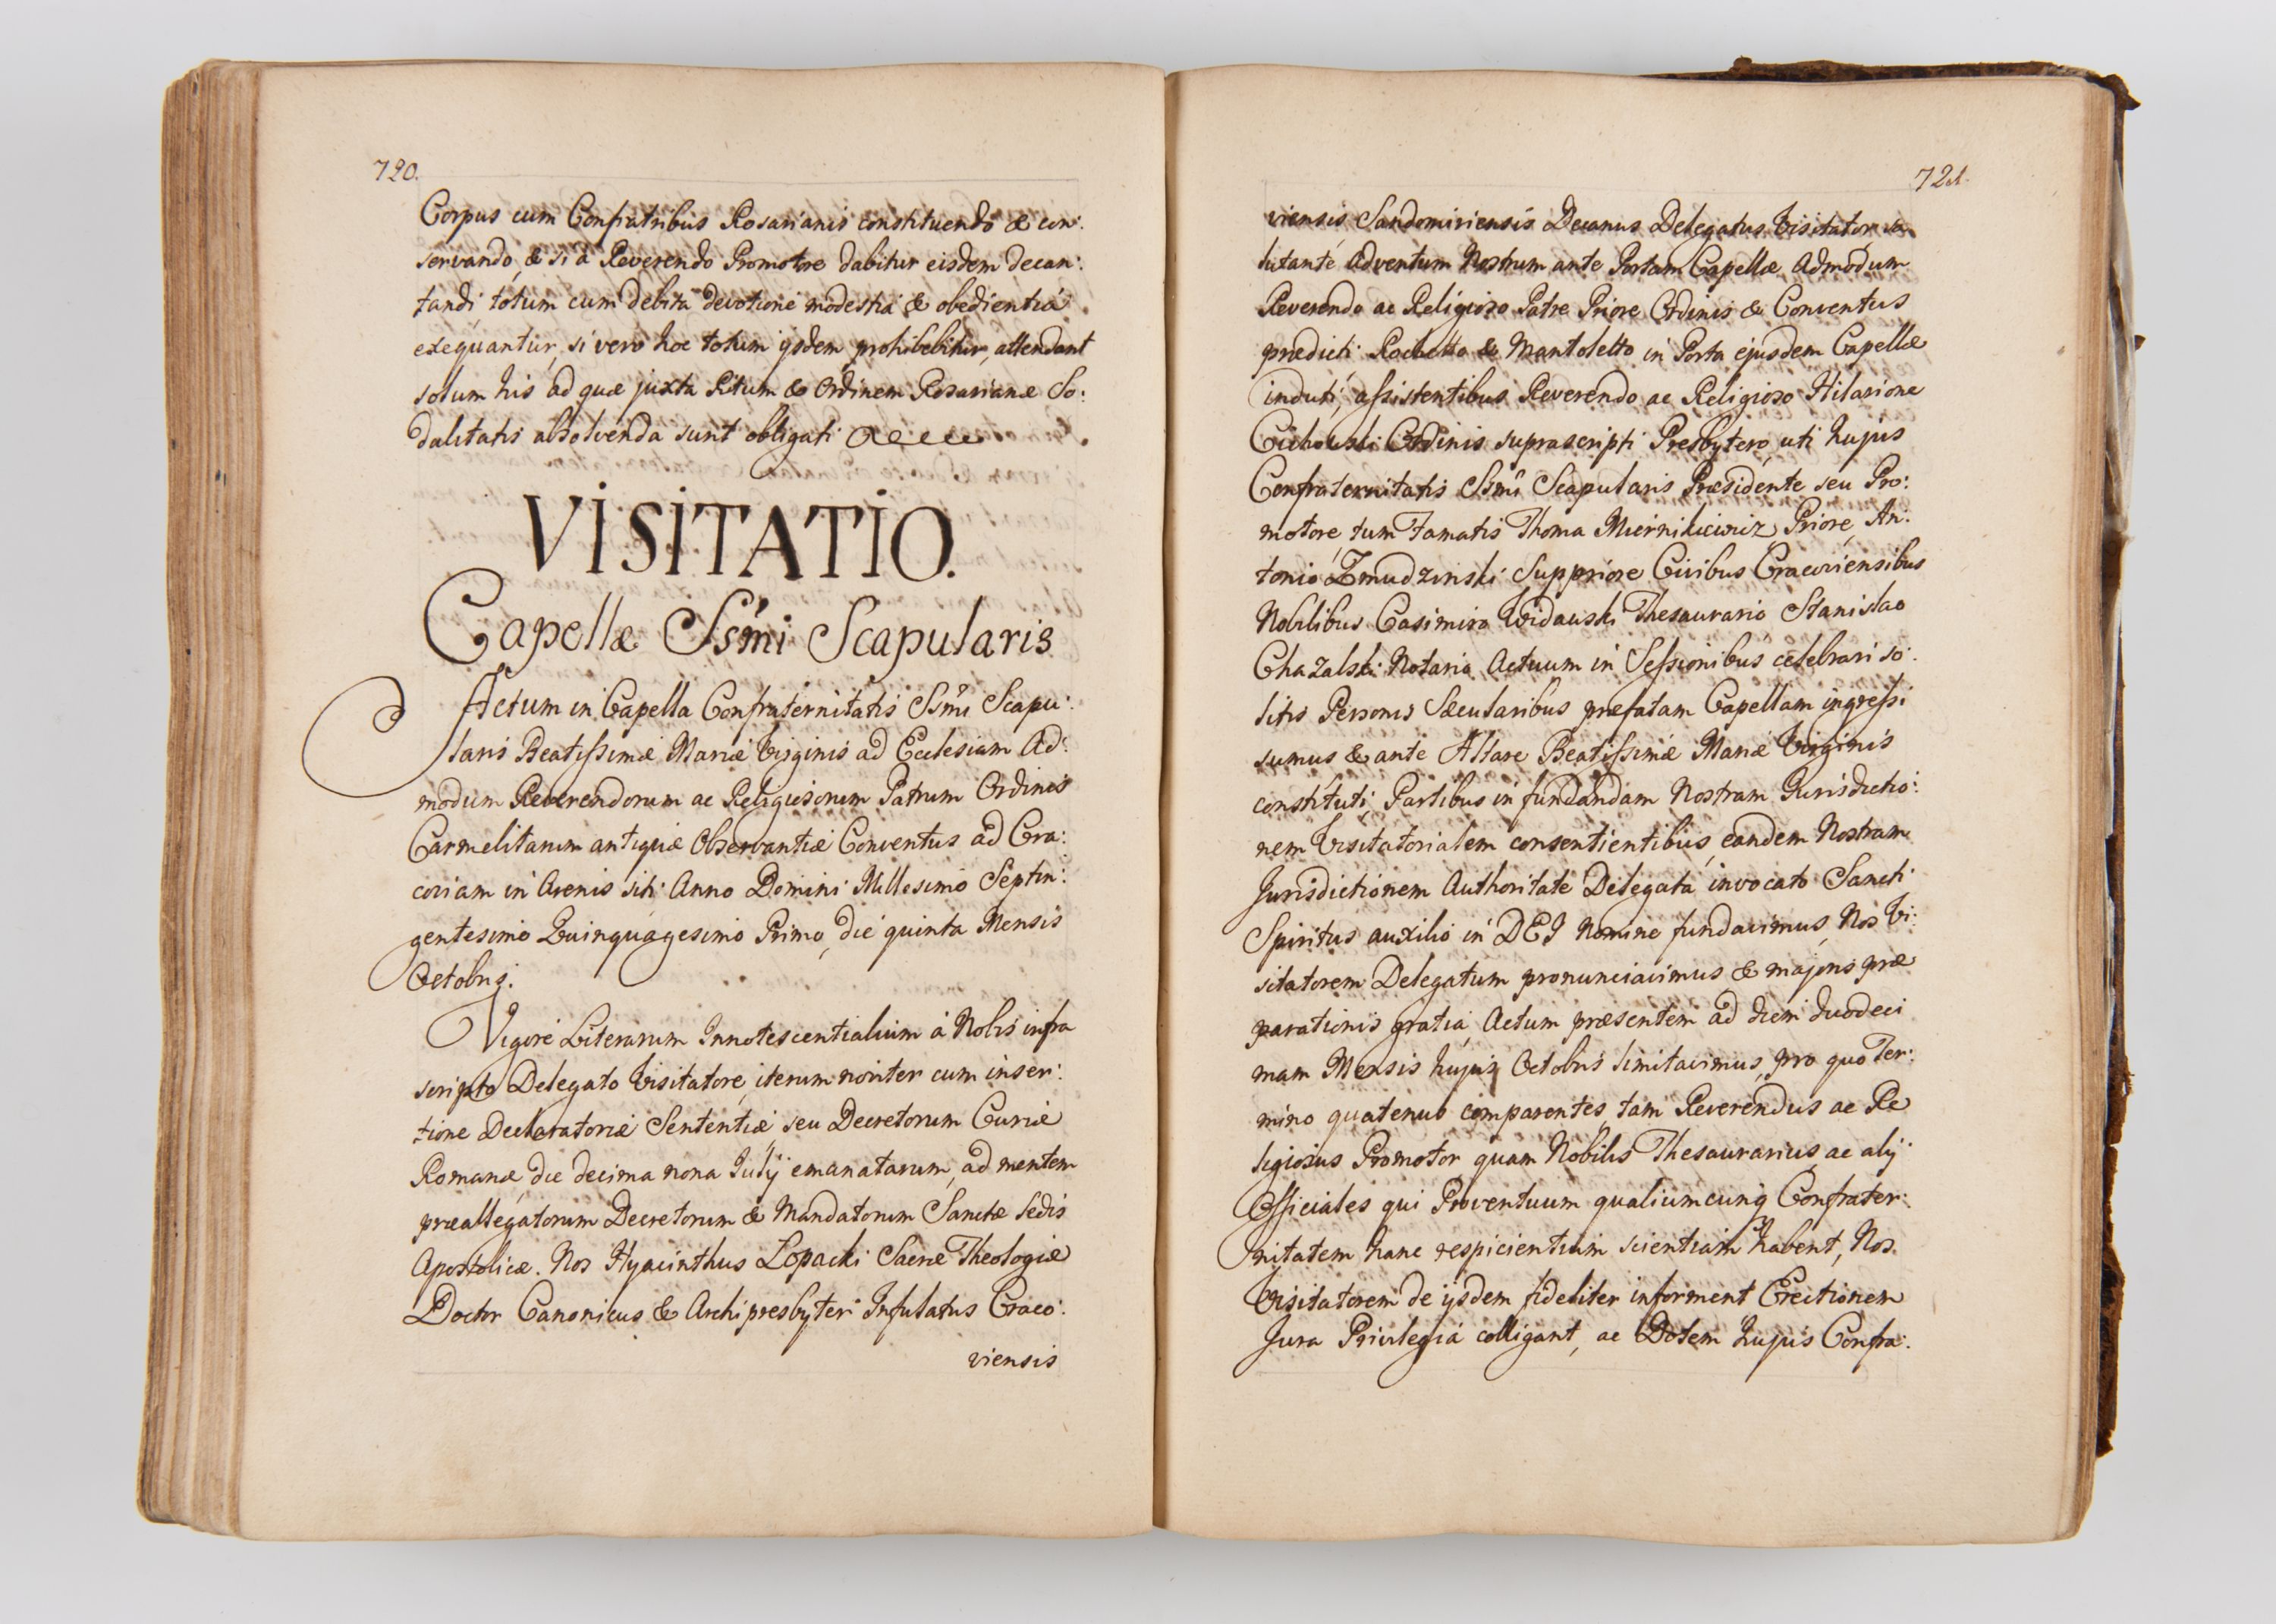 720.
Corpus cum Confratribus Rosarianis constituendo & con:
servando, & si à Reverendo Promotore dabitur eisdem decan:
tandi totum cum debita devotione modestia & obedientiá
exequantur, si vero hoc totum ijsdem prohibebitur, attendant
solum his ad quæ juxta Ritum & Ordinem Rosarianæ So:
dalitatis absolvenda sunt obligati
VISITATIO.
Capellæ Ssmi Scapularis
Actum in Capella Confraternitatis Ssmi Scapu:
laris Beatissimæ Mariæ Virginis ad Ecclesiam Ad:
modum Reverendorum ac Religiosorum Patrum Ordinis
Carmelitarum antiquæ Observantiæ Conventus ad Cra:
coviam in Arenis siti Anno Domini Millesimo Septin:
gentesimo Quinquagesimo Primo, die quinta Mensis
Octobris.
Vigore Literarum Innotescentialium à Nobis infra
scripto Delegato Visitatore, iterum noviter cum inser:
tione Declaratoriæ Sententiæ seu Decretorum Curiæ
Romanæ die decima nona Julij emanatarum, ad mentem
præallegatorum Decretorum & Mandatorum Sanctæ Sedis
Apostolicæ. Nos Hyacinthus Łopacki Sacræ Theologiæ
Doctor Canonicus & Archipresbyter Infulatus Craco:
viensis
721.
viensis Sandomiriensis Decanus Delegatus Visitator, sa
lutante adventum Nostrum ante Portam Capellæ Admodum
Reverendo ac Religioso Patre Priore Ordinis & Conventus
prædicti Rochetto & Mantoletto in Porta ejusdem Capellæ
induti, assistentibus Reverendo ac Religioso Hilarione
Cichowski Ordinis suprascripti Presbytero, uti hujus
Confraternitatis Ssmi Scapularis Præsidente seu Pro:
motore, tum Famatis Thoma Miernikiewicz Priore, An:
tonio Zmudzinski Suppriore Civibus Cracoviensibus
Nobilibus Casimiro Widawski Thesaurario Stanislao
Chazalski Notario Actuum in Sessionibus celebrari so:
litis Personis Sæcularibus præfatam Capellam ingressi
sumus & ante Altare Beatissimæ Mariæ Virginis
constituti, Partibus in fundandam Nostram Jurisdictio:
nem Visitatorialem consentientibus, eandem Nostram
Jurisdictionem Authoritate Delegatá invocato Sancti
Spiritus auxilio in DEI Nomine fundavimus, Nos Vi:
sitatorem Delegatum pronunciavimus & majoris præ
parationis gratiá Actum præsentem ad diem duodeci
mam Mensis hujus Octobris limitavimus, pro quo Ter:
mino quatenus comparentes, tam Reverendus ac Re
ligiosus Promotor quam Nobilis Thesaurarius, ac alij
Officiales qui Proventuum qualiumcunq Confrater:
nitatem hanc respicientium scientiam habent, Nos
Visitatorem de ijsdem fideliter informent Erectionem
Jura Privilegia colligant, ac Dotem hujus Confra: